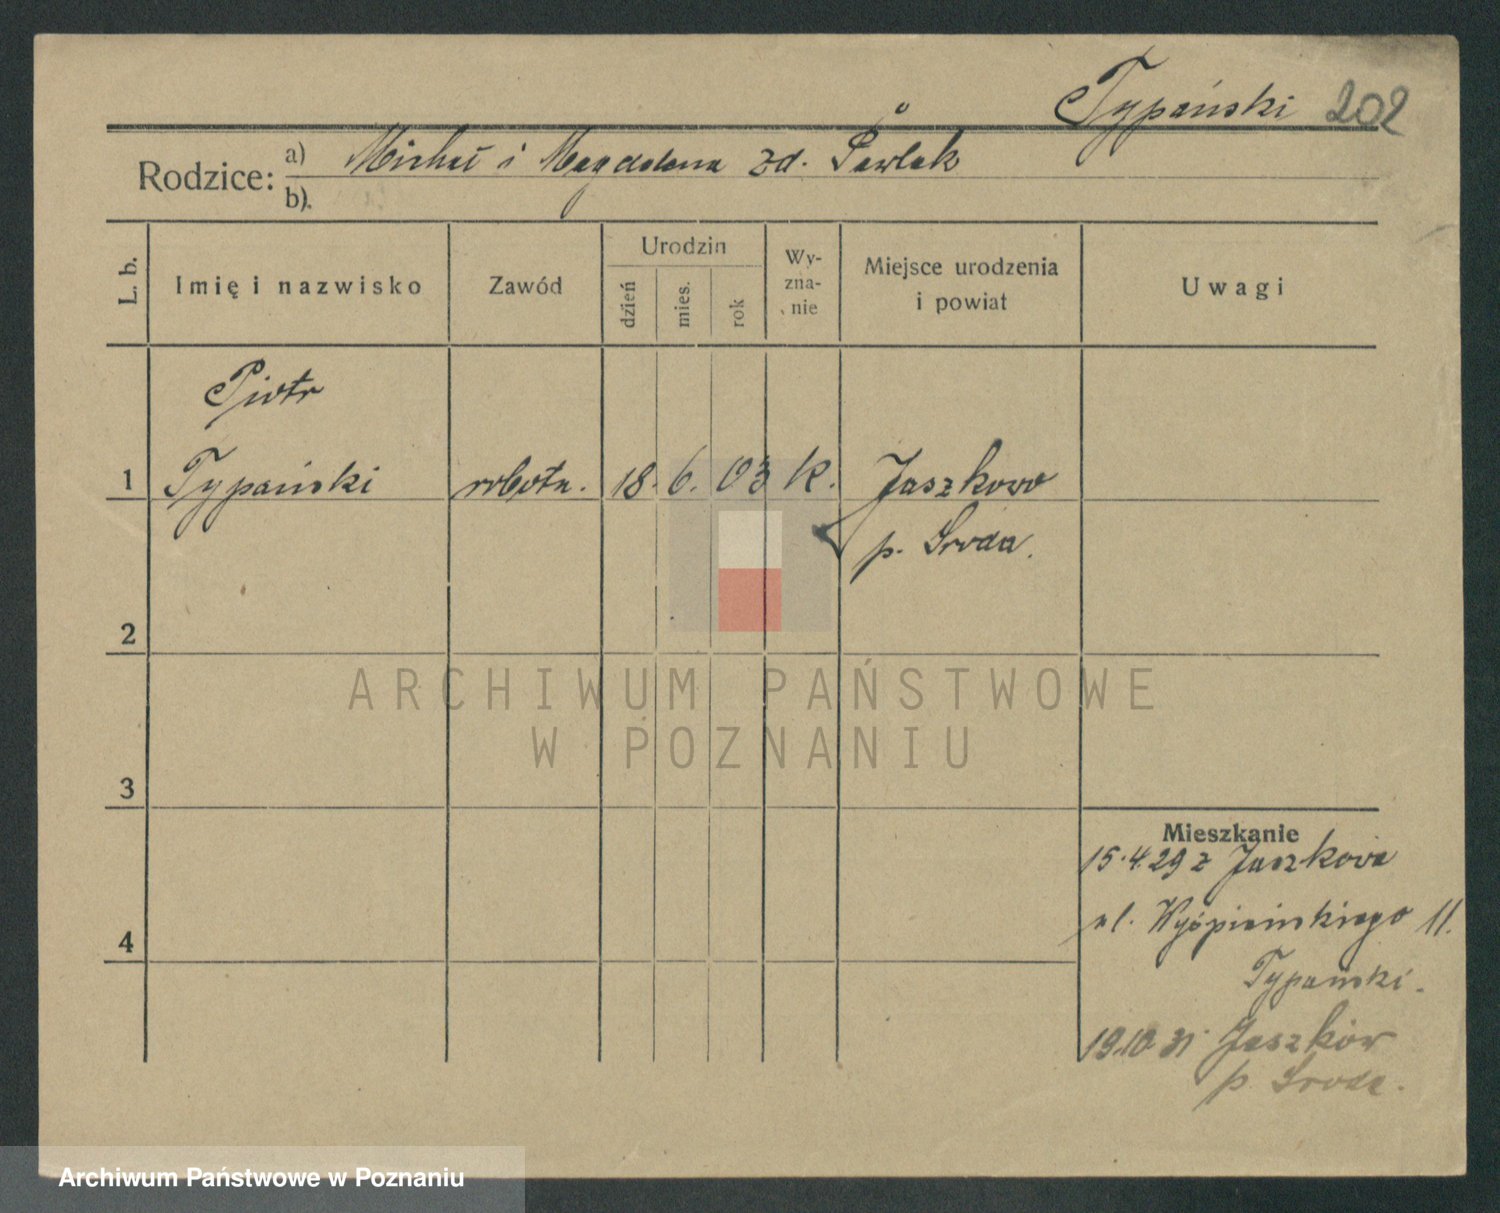 Typański 202
Rodzice: a) Michał i Magdalena zd. Pawlak
b)
L. b.
Imię i nazwisko
Zawód
Urodzin
dzień
mies.
rok
Wy-
zna-
nie
Miejsce urodzenia
i powiat
Uwagi
Piotr
1 Typański robotn. 18. 6. 03 k. Jaszkowo
p. Sroda.
2
ARCHIWUM PAŃSTWOWE
W POZNANIU
3
Mieszkanie
15.4.29 z Jaszkowa
ul. Wyśpiańskiego 11.
4
Typański.
19.10.31. Jaszków
p. Sroda.
Archiwum Państwowe w Poznaniu